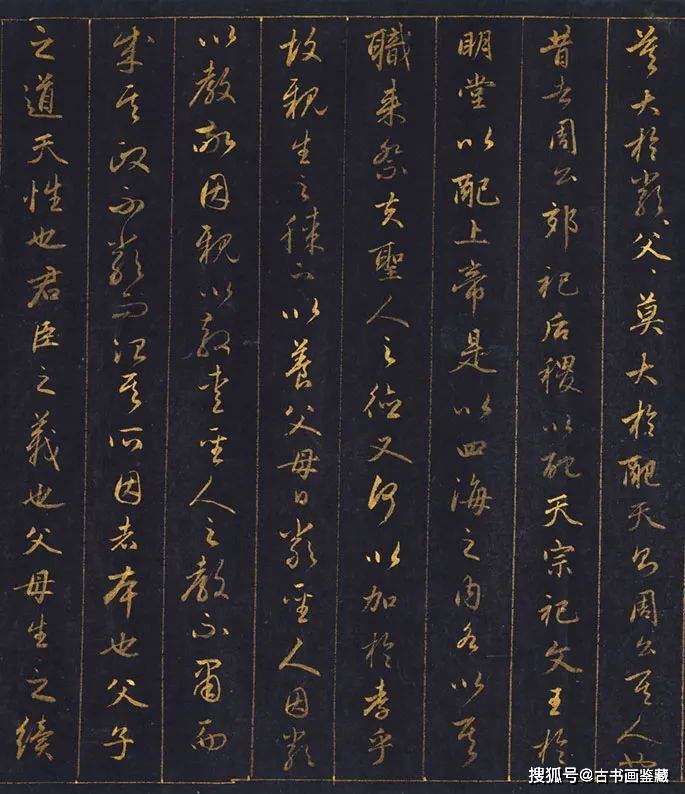 莫大於嚴〻父〻莫大於配天則周公其人也
昔者周公郊祀后稷以配天宗祀文王於
明堂以配上帝是以四海之內各以其
職來祭夫聖人之德又何以加於孝乎
故親生之膝下以養父母日嚴聖人因嚴
以教敬因親以教愛聖人之教不肅而
成其政不嚴而治其所因者本也父子
之道天性也君臣之義也父母生之續
搜狐号@古书画鉴藏